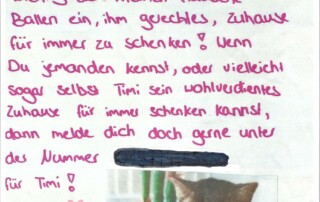 Ballen ein, ihm gerechtes, Zuhause
für immer zu schenken! Wenn
Du jemanden kennst, oder vielleicht
sogar selbst Timi sein wohlverdientes
Zuhause für immer schenken kannst,
dann melde dich doch gerne unter
der Nummer
für Timi!